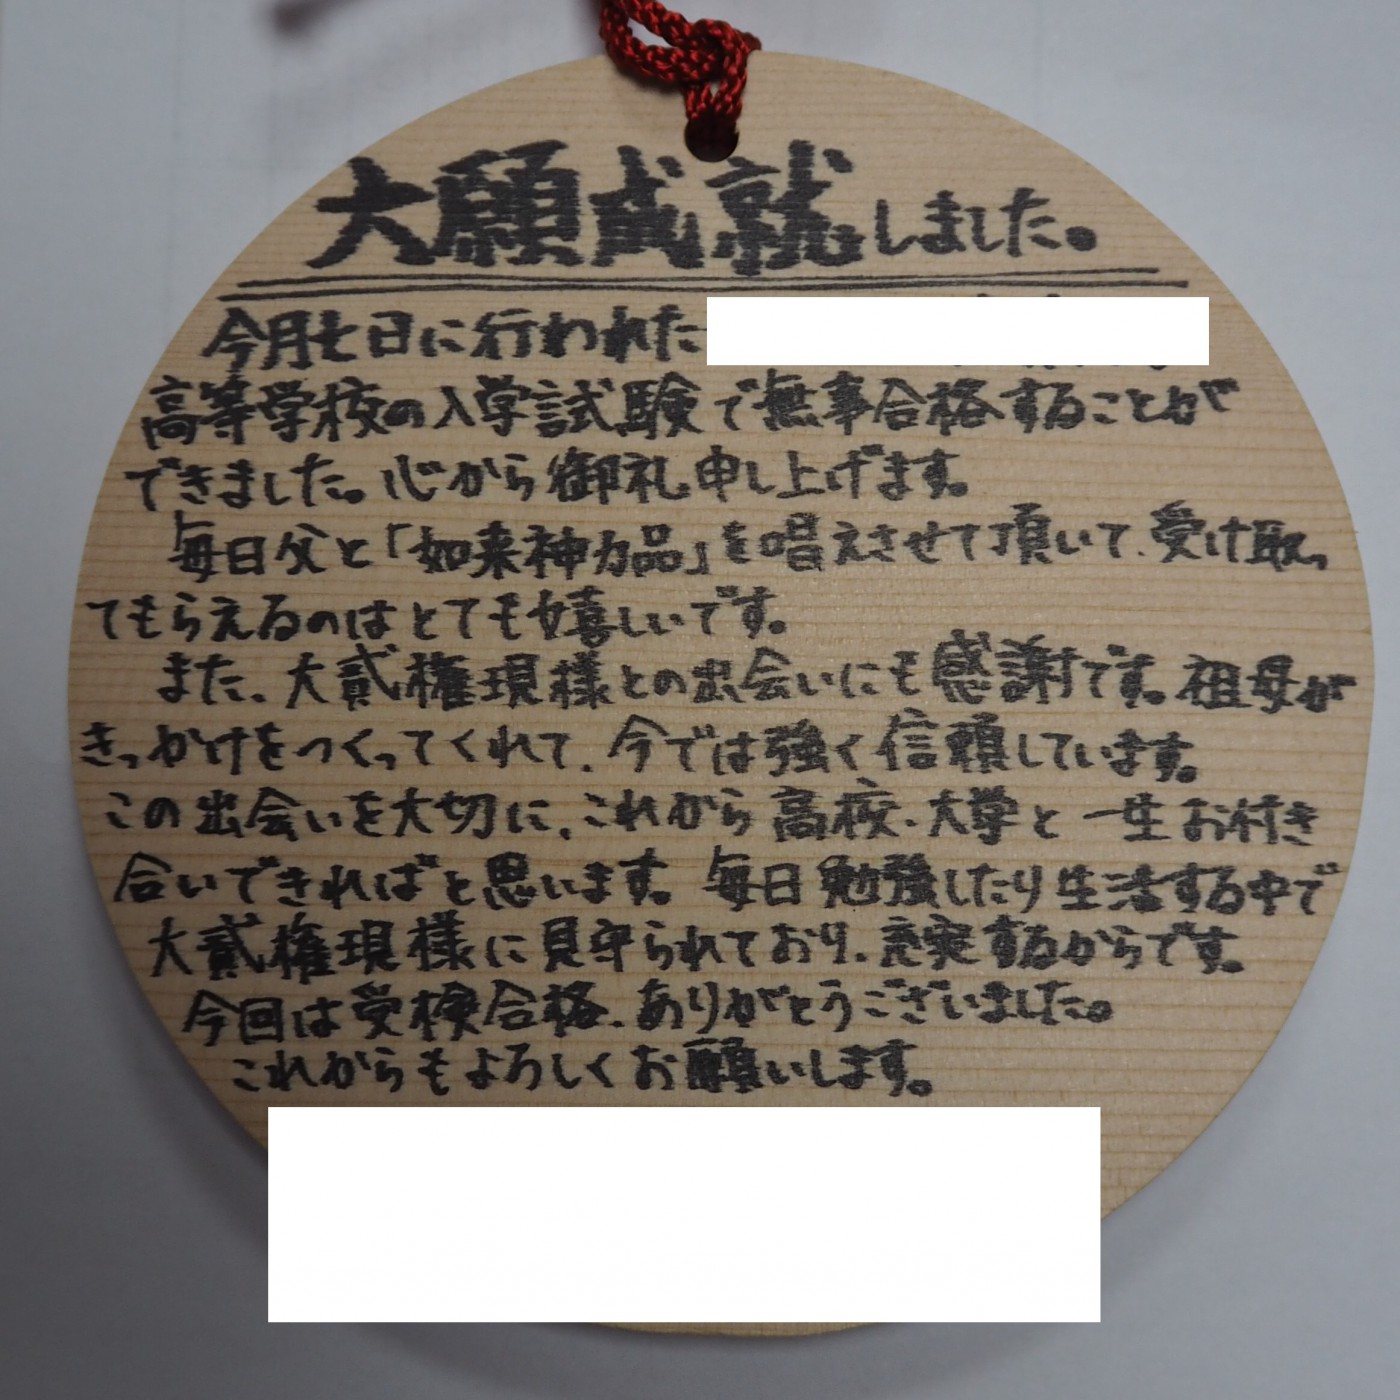 大願成就しました。
今月七日に行われた
高等学校の入学試験で無事合格することが
できました。心から御礼申し上げます。
毎日父と「如来神力品」を唱えさせて頂いて、受け取っ
てもらえるのはとても嬉しいです。
また、大貳権現様との出会いにも感謝です。祖母が
きっかけをつくってくれて、今では強く信頼しています。
この出会いを大切に、これから高校、大学と一生お付き
合いできればと思います。毎日勉強したり生活する中で
大貳権現様に見守られており、充実するからです。
今回は受検合格、ありがとうございました。
これからもよろしくお願いします。